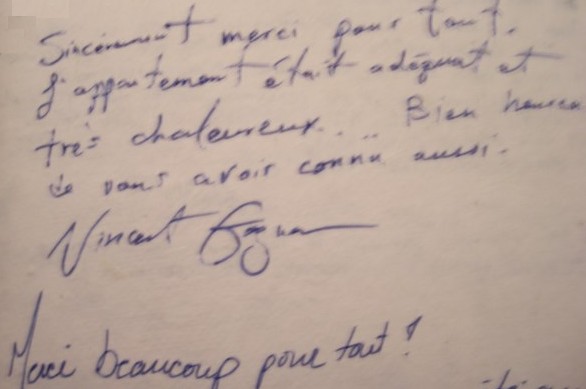 Sincèrement merci pour tout.
L'appartement était adéquat et
très chaleureux... Bien heureux
de vous avoir connu aussi.
Vincent
Merci beaucoup pour tout !